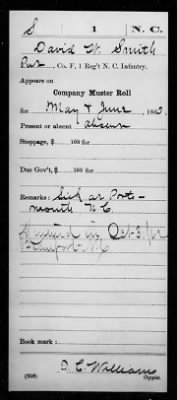 S 1 N.C.
David W. Smith
Pvt, Co. F, 1 Reg't N. C. Infantry.
Appears on
Company Muster Roll
for May & June, 1863.
Present or absent absent
Stoppage, $ 100 for
Due Gov't, $ 100 for
Remarks: Sick at Ports-
mouth, N.C.
in Oct. 31/62
Beaufort N.C.
Book mark:
D. C. William
(358) Copyist.